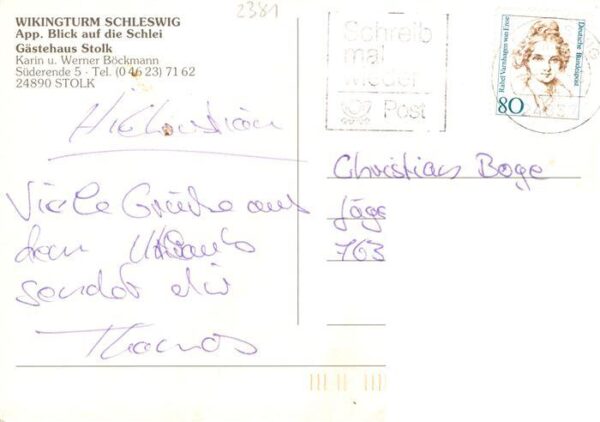 2381
WIKINGTURM SCHLESWIG
App. Blick auf die Schlei
Gästehaus Stolk
Karin u. Werner Böckmann
Süderende 5 - Tel. (0 46 23) 71 62
24890 STOLK
Schreib
mal
wieder
Post
Rahel Varnhagen von Ense
Deutsche Bundespost
80
Hi Christian
Viele Grüße aus
dem Urlaub
sendet dir
Thomas
Christian Boge
Jäge
763